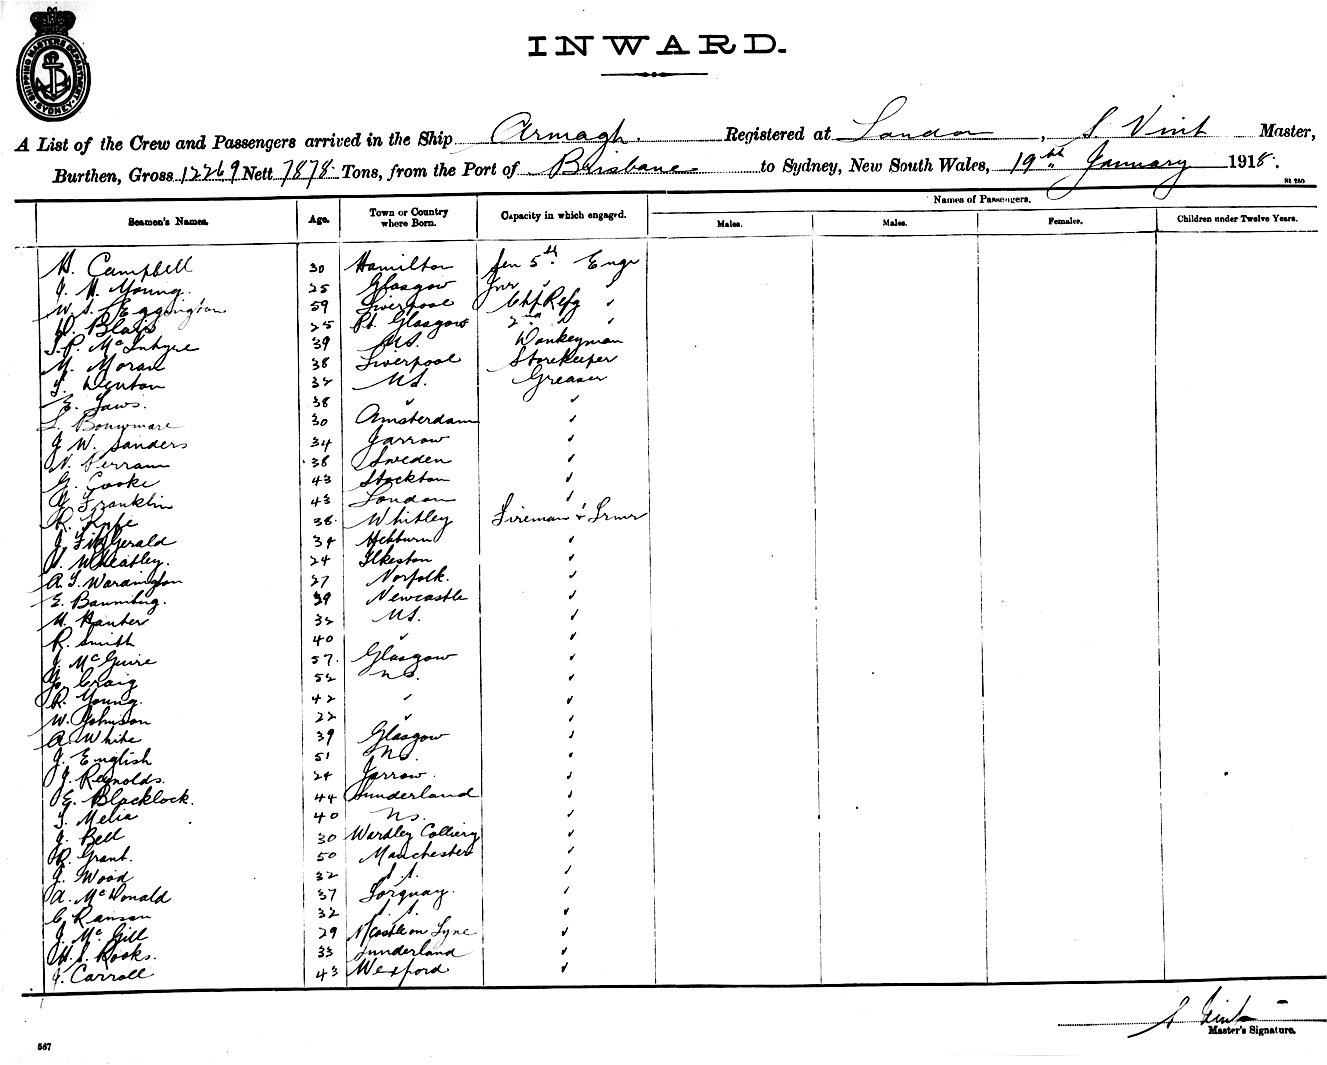 SHIPPING MASTERS DEPARTMENT SYDNEY
INWARD.
A List of the Crew and Passengers arrived in the Ship Armagh. Registered at London, S. Vint Master,
Burthen, Gross 12269 Nett 7878 Tons, from the Port of Brisbane to Sydney, New South Wales, 19th January 1918.
Names of Passengers.
Seamen's Names. Age. Town or Country where Born. Capacity in which engaged. Males. Males. Females. Children under Twelve Years.
Campbell 30 Hamilton Sen 5th Engr
J. H. Young. 25 Glasgow Jnr "
W. S. Eggington 59 Liverpool Chf Refg "
Blair 25 Pt. Glasgow 2nd " "
McIntyre 39 Donkeyman
M. Moran 38 Liverpool Storekeeper
Denton 32 Greaser
E. Laws. 38 " "
30 Amsterdam "
J. W. Sanders 34 Jarrow "
38 Sweden "
G. Cooke 43 Stockton "
Franklin 43 London "
R. 38 Whitley Fireman & Trmr
J. FitzGerald 34 Hebburn "
Wheatley. 24 Ilkeston "
A. Wardington 27 Norfolk. "
E. 39 Newcastle "
Hunter 32 "
R. Smith 40 " "
J. McGuire 57. Glasgow "
Craig 52 N.S. "
R. Young. 42 " "
W. Johnson 22 " "
A. White 39 Glasgow "
J. English 51 N.S. "
J. Reynolds. 24 Jarrow. "
E. Blacklock. 44 Sunderland "
Melia 40 N.S. "
J. Bell 30 Wardley Colliery "
R. Grant. 50 Manchester "
J. Wood 32 "
A. McDonald 37 Torquay. "
C. Ranson 32 "
J. McGill 29 Ncastle on Tyne "
Rooks. 33 Sunderland "
J. Carroll 43 Wexford "
S. Vint
Master's Signature.
567